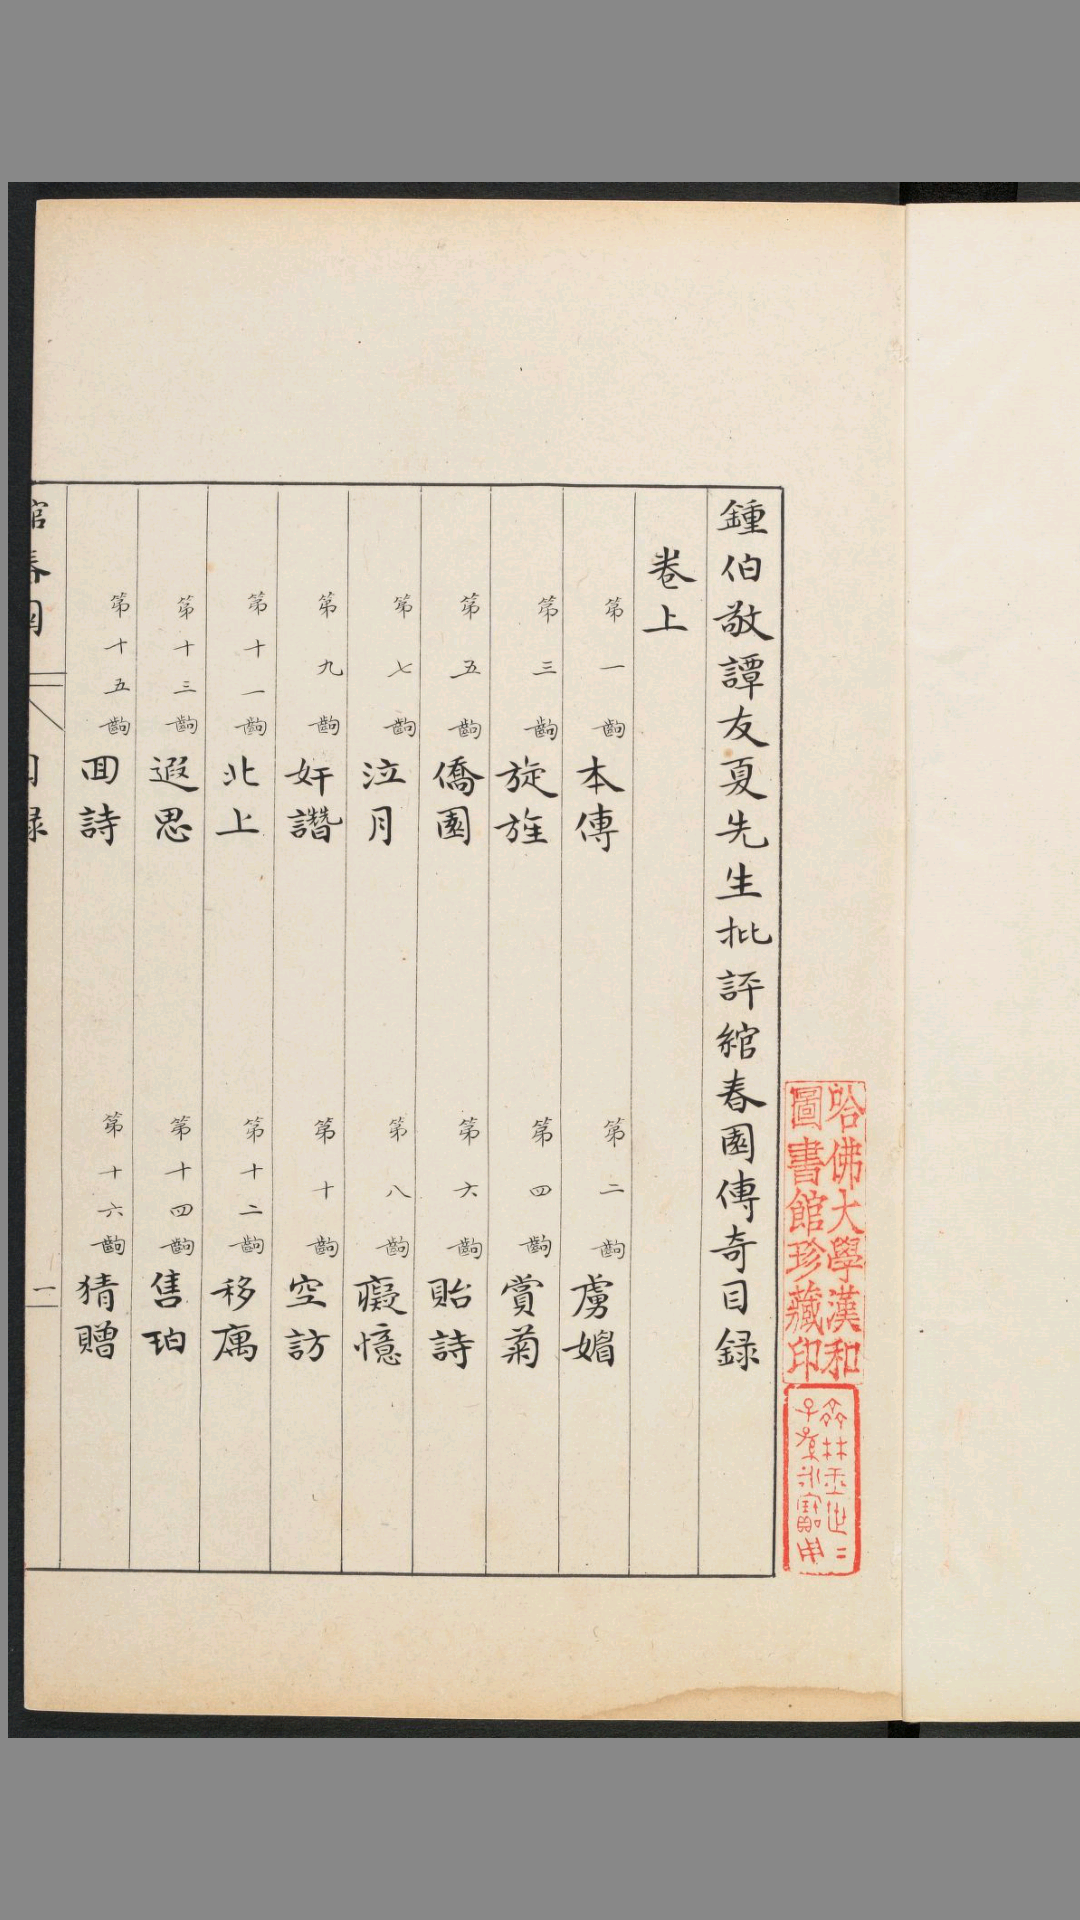 鍾伯敬譚友夏先生批評綰春園傳奇目録
卷上
第一齣 本傳 第二齣 虜媚
第三齣 旋旌 第四齣 賞菊
第五齣 僑園 第六齣 貽詩
第七齣 泣月 第八齣 癡憶
第九齣 奸譖 第十齣 空訪
第十一齣 北上 第十二齣 移寓
第十三齣 遐思 第十四齣 售珀
第十五齣 囬詩 第十六齣 猜贈
綰春園 目録 一
哈佛大學漢和
圖書館珍藏印
子孫永寶用